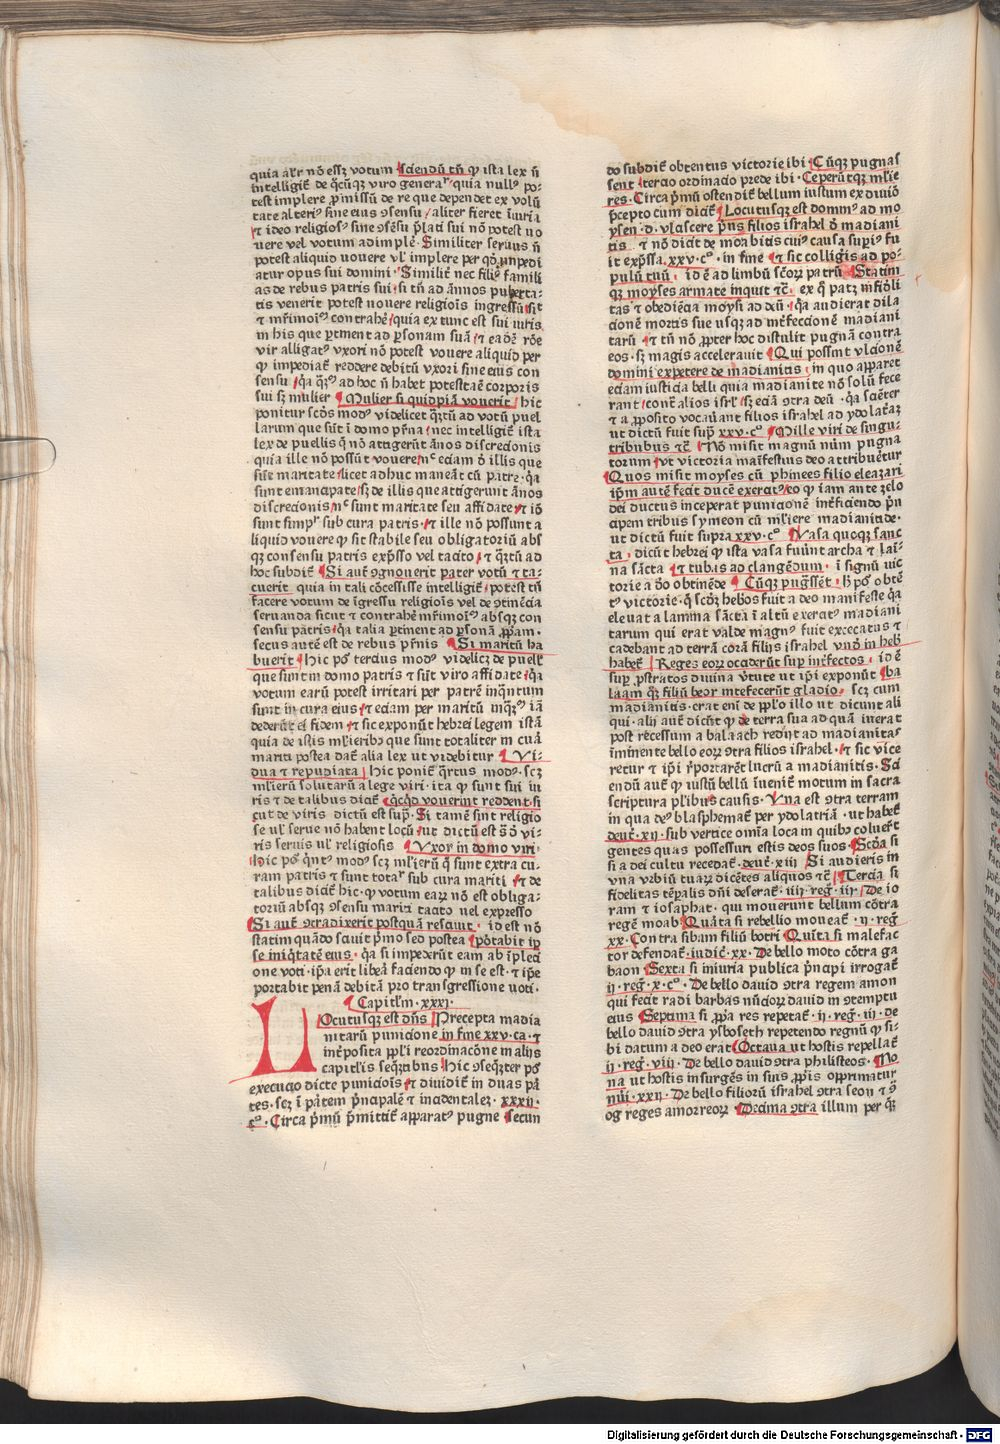 quia alr̄ nō essꝫ votum Sciendū tn̄ ꝙ ista lex n̄
intelligiť de q̄cūqꝫ viro general' quia null' po-
test implere ꝓmissū de re que dependet ex volū
tate alteri' sine eius ɔsensu / aliter fieret iiuria
⁊ ideo religios' sine ɔsēsu p̄lati sui nō potest vo
uere vel votum adimplē. Similiter seruus n̄
potest aliquid vouere vl' implere per qď īmpedi
atur opus sui domini. Similiť nec fili' famili
as de rebus patris sui. si tn̄ ad ānnos puberta-
tis venerit potest vouere religiōis ingressū sic
⁊ mr̄imoī' contrahē quia ex tunc est sui iuris
in his que ꝑtinent ad ꝑsonam suā ⁊ eadē rōe
vir alligat' vxori nō potest vouere aliquid per
ꝙ impediať reddere debitū vxori sine eius con
sensu / q̄a q̄ꝫ' ad hoc n̄ habet potestatē corporis
sui sꝫ mulier Mulier si quidpiā vouerit hic
ponitur scḋs mod' videlicet q̄ꝫtū ad votū puel
larum que sūt ī domo pr̄na nec intelligiť ista
lex de puellis q̄ nō attigerūt ānos discrecionis
quia ille nō possūt vouere nec eciam ď illis que
sūt maritate licet adhuc maneāt cū patre. q̄a
sunt emancipate sꝫ de illis que attigerunt ānos
discrecionis nec sunt maritate seu affidate ⁊ iō
sunt simpl'r sub cura patris ⁊ ille nō possunt a
liquid vouere ꝙ sit stabile seu obligatoriū abs
qꝫ consensu patris exp̄sso vel tacito ⁊ q̄ꝫtū ad
hoc subdiť Si aut̄ ɔgnouerit pater votū ⁊ ta-
cuerit quia in tali cōcessisse intelligiť potest tn̄
facere votum de īgressu religiōis vel de ɔtinēcia
seruanda sicut ⁊ contrahē mr̄imoī' absqꝫ con
sensu patris. q̄a talia ꝑtinent ad ꝑsonā ꝓpriam.
secus autē est de rebus pr̄nis Si maritū ha
buerit hic pōť tercius mod' videlicꝫ de puell'
que sunt in domo patris ⁊ sūt viro affidate q̄a
votum earū potest irritari per patrē inq̄ntum
sunt in cura eius ⁊ eciam per maritū inq̄ꝫ' iā
dederūt ei fidem ⁊ sic exponūt hebrei legem istā
quia de istis ml'ieribꝰ que sunt totaliter in cura
mariti postea dať alia lex ut videbitur Vi-
dua ⁊ repudiata hic poniť q̄rtus mod'. scꝫ
ml'ierū solutarū a lege viri. ita ꝙ sunt sui iu
ris ⁊ de talibus diciť q̄cqď vouerint reddent. si
cut de viris dictū est sup̄. Si tamē sint religio
se ul' serue nō habent locū ut dictū est ś ď vi-
ris seruis ul' religiosis Vxor in domo viri
hic pōť q̄nt' mod' scꝫ ml'ierū q̄ sunt extra cu-
ram patris ⁊ sunt total'r sub cura mariti ⁊ de
talibus diciť hic. ꝙ votum earꝝ nō est obliga-
toriū absqꝫ ɔsensu mariti tacito uel expresso
Si aut̄ ɔtradixerit postquā resciuit. id est nō
statim quādo sciuit pr̄mo sed postea portabit ip
se iniq̄tatē eius. q̄a si impederūt eam ab īpleci
one voti. ip̄a erit liberā faciendo ꝙ in se est. ⁊ ip̄e
portabit penā debitā pro transgressione uoti.
Capitl'm. xxxj.
LOcutusqꝫ est dn̄s Precepta madia
nitarū punicione in fine xxv. ca. ⁊
int̄posita pp̄li reordinacōne in aliis
capitl'is seq̄ntibus hic ɔseq̄nter pōť
execucio dicte puniciōis ⁊ diuidiť in duas pā
tes. scꝫ ī pātem pr̄ncipalē ⁊ incidentalē. xxxij.
c°. Circa pr̄mū pr̄mittiť apparat' pugne secun
do subdiť obtentus victorie ibi Cūqꝫ pugnas
sent tercio ordinacio prede ibi. Ceperūtqꝫ ml'ie
res. Circa pr̄mū ostendiť bellum iustum ex diuiō
p̄cepto cum diciť Locutusqꝫ est dominꝰ ad mo
ysen. d. vlciscere pr̄us filios israhel ď madiani
tis ⁊ nō dicit de moabitis cui' causa supi' fu
it exp̄ssa. xxv. c°. in fine ⁊ sic colligēis ad po-
pulū tuū. id ē ad limbū scōꝝ patrū Statim
qꝫ moyses armate inquit ⁊c̄. ex q̄ patꝫ mr̄iōli
tas ⁊ obediēcia moysi ad deū. q̄a audierat dila
cionē mortis sue usqꝫ ad int̄feccionē madiani
tarū ⁊ tn̄ nō ꝓpter hoc distulit pugnā contra
eos. sꝫ magis accelerauit Qui possint vlcionē
domini expetere de madianitis. in quo apparet
eciam iusticia belli quia madianite nō solū fece
rant cont̄ alios isrl' sꝫ eciā ɔtra deū. q̄a sciēter
⁊ a ꝓposito vocauant filios israhel ad ydolatꝛiā
ut dictū fuit sup̄ xxv. c° Mille viri de singu-
tribubus ⁊c̄ Nō misit magnū nūm pugna
torum ut victoria manifestius deo attribuētur
Quos misit moyses cū phinees filio eleazari
ip̄m autē fecit ducē exercit' eo ꝙ iam ante zelo
dei ductus inceperat punicionē int̄ficiendo pr̄n
cipem tribus symeon cū ml'iere madianitide.
ut dictū fuit supra xxv. c°. Vasa quoqꝫ sanc
ta. dicūt hebrei ꝙ ista vasa fuūnt archa ⁊ lai-
na sācta ⁊ tubas ad clangēdum. ī signū uic
torie a ďo obtinēde Cūqꝫ pug̃ssēt. h̄ pōť obtē
t' victorie. q̄ scďꝫ hebꝰos fuit a deo manifeste q̄a
eleuata lamina sācta ī altū exercit' madiani
tarum qui erat valde magn' fuit excecatus ⁊
cadebant ad terrā corā filijs israhel vnď in heb
habeť Reges eorꝝ ociderūt sup̄ int̄fectos. id ē
sup̄ ꝓstratos diuina v̄tute ut ip̄i exponūt ba
laam q̄ꝫ filiū beor int̄efecerūt gladio. scꝫ cum
madianitis. erat eni' de pp̄l'o illo ut dicunt ali
qui. alij aut̄ dicūt ꝙ de terra sua ad quā iuerat
post recessum a balaach redijt ad madianitas
īminente bello eorꝝ ɔtra filios israhel. ⁊ sic vice
retur ⁊ ip̄i rp̄ortarēt lucrū a madianitis. Sci
endū aut̄ ꝙ iustū bellū īueniť motum in sacra
scriptura pl'ibus causis. Vna est ɔtra terram
in qua de' blasphemať per ydolatriā. ut habeť
deut̄. xij. sub vertice om̄ia loca in quibꝰ coluer̄t
gentes quas possessuri estis deos suos Scḋa si
si a dei cultu recedať. deut̄. xiij Si audieris in
vna vrbiū tuarꝝ dicētes aliquos ⁊c̄ Tercia si
fidelitas tēꝑalis dn̄i deserať. iiij reg̃. iij. De io
ram ⁊ iosaphat. qui mouerunt bellum cōtra
regē moab Quārta si rebellio moueať. ij. reg̃
xx. Contra sibam filiū botri Quīta si malefac
tor defendať. iudic̄. xx. De bello moto cōtra ga
baon Sexta si iniuria publica pr̄ncipi irrogať
ij. reg̃. x. c°. De bello dauid ɔtra regem amon
qui fecit radi barbas nūcioꝝ dauid in ɔtemptu
eius Septima si ꝓpria res repetať. ij. reg̃. iij. de
bello dauid ɔtra ysboseth repetendo regnū ꝙ si-
bi datum a deo erat Octaua ut hostis repellať
ij. reg̃. viij. De bello dauid ɔtra philisteos. No
na ut hostis insurgēs in suis ꝓprijs opprimatur
nūi. xxij. De bello filiorū israhel ɔtra seon ⁊ ɔ̃
og reges amorreorꝝ Decima ɔtra illum per q̄ꝫ
Digitalisierung gefördert durch die Deutsche Forschungsgemeinschaft - DFG